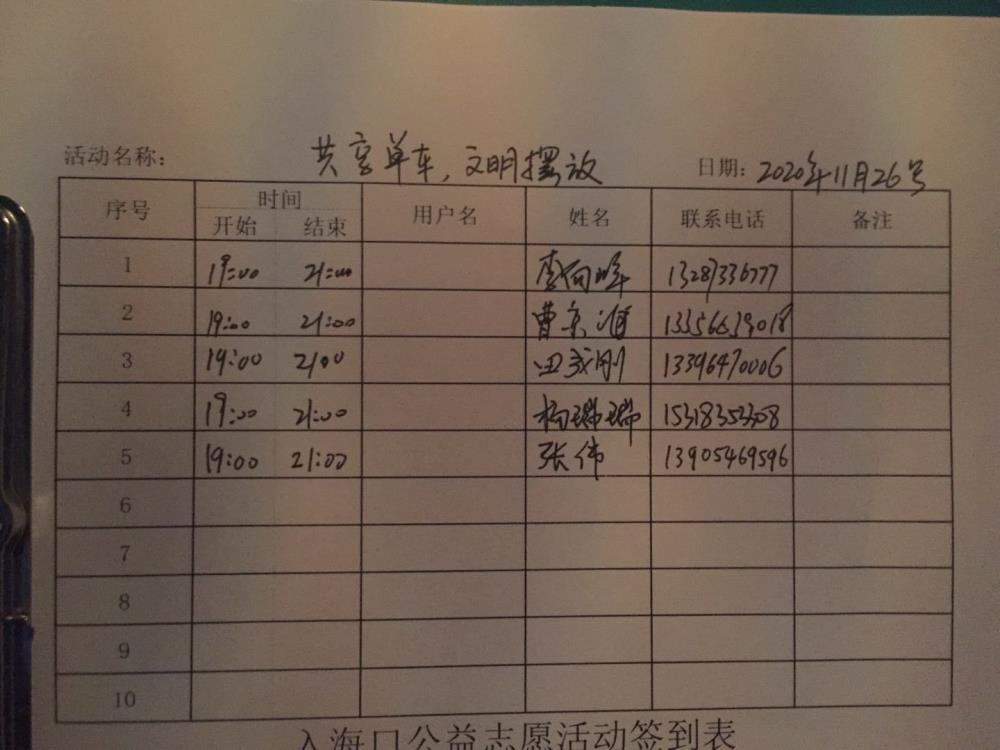 活动名称: 共享单车,文明摆放 日期: 2020年11月26号
序号 时间 用户名 姓名 联系电话 备注
开始 结束
1 19:00 21:00 13287336777
2 19:00 21:00 13356639018
3 19:00 2100 田成刚 13396470006
4 19:00 21:00 杨瑞瑞
5 19:00 21:00 张伟 13905469596
6
7
8
9
10
入海口公益志愿活动签到表